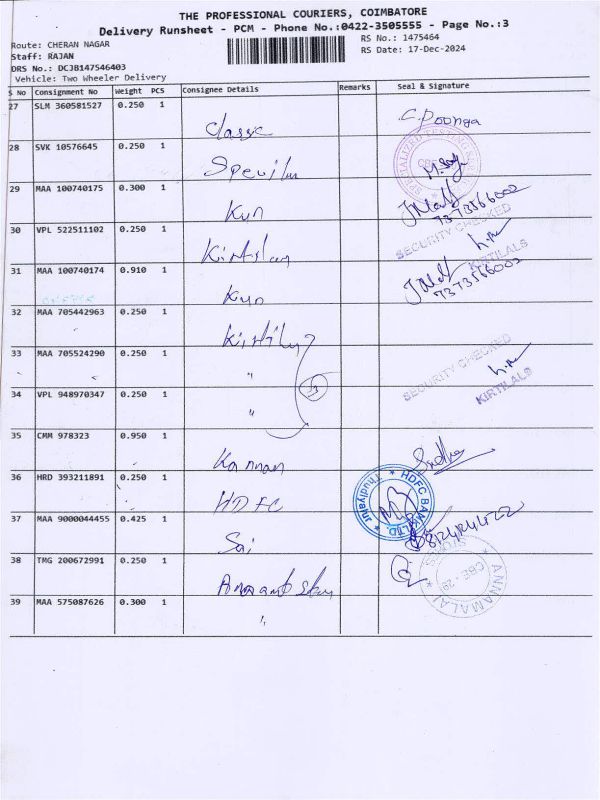 THE PROFESSIONAL COURIERS, COIMBATORE
Delivery Runsheet - PCM - Phone No.:0422-3505555 - Page No.:3
Route: CHERAN NAGAR
RS No.: 1475464
Staff: RAJAN
RS Date: 17-Dec-2024
DRS No.: DCJB147546403
Vehicle: Two Wheeler Delivery
S No Consignment No Weight PCS Consignee Details Remarks Seal & Signature
27 SLM 360581527 0.250 1
Classic
C. Poonga
28 SVK 10576645 0.250 1
29 MAA 100740175 0.300 1
7373566002
30 VPL 522511102 0.250 1
SECURITY CHECKED
KIRTILALS
31 MAA 100740174 0.910 1
7373566002
32 MAA 705442963 0.250 1
33 MAA 705524290 0.250 1
"
SECURITY CHECKED
KIRTILALS
34 VPL 948970347 0.250 1
"
35 CMM 978323 0.950 1
Kannan
36 HRD 393211891 0.250 1
HDFC
HDFC BANK LTD.
Thudiyalur
37 MAA 9000044455 0.425 1
Sai
38 TMG 200672991 0.250 1
ANNAMALAI
CBE - 29
39 MAA 575087626 0.300 1
"